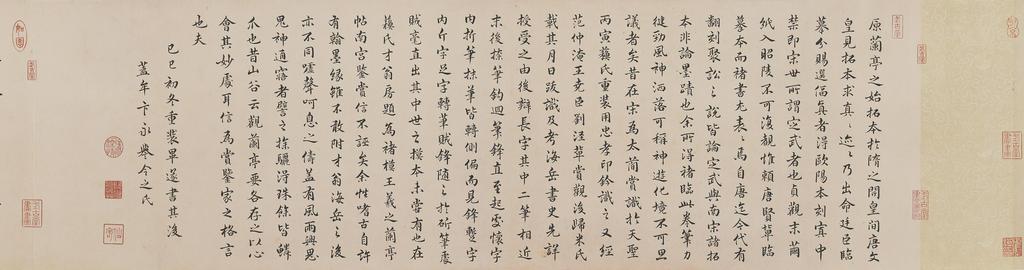 原蘭亭之始拓本於隋之開皇間唐文
皇見拓本求真之迹乃出命廷臣臨
摹分賜選偪真者得歐陽本刻寘中
禁即宋世所謂定武者也貞觀末繭
紙入昭陵不可復覩惟賴唐賢草臨
摹本而褚書尤表之焉自唐迄今代有
翻刻聚訟之說皆論定武與南宋諸拓
本非論墨蹟也余所得褚臨此卷筆力
縱勁風神洒落可稱神遊化境不可亘
議者矣昔在宋為太簡賞識於天聖
丙寅蘇氏重裝用忠孝印鈐識之又經
范仲淹王堯臣劉涇草賞觀後歸米氏
載其月日跋識及考海岳書史先詳
授受之由後辯長字其中二筆相近
末後捺筆鈎迴筆鋒直至起處懷字
內折筆捺筆皆轉側偏而見鋒蹔字
內斤字足字轉筆賊鋒隨之於斫筆處
賊毫直出其中世之摸本未嘗有也在
蘇氏才翁房題為褚模王羲之蘭亭
帖南宮鑒賞信不誣矣余性嗜古自許
有翰墨緣雖不敢附才翁海岳之後
亦不同噓聲呵息之儔蓋有風雨與思
鬼神通寤者譬之採驪得珠餘皆鱗
爪也昔山谷云觀蘭亭要各存之以心
會其妙處耳信為賞鑒家之格言
也夫
己巳初冬重裝畢遂書其後
蓋牟卞永譽令之氏